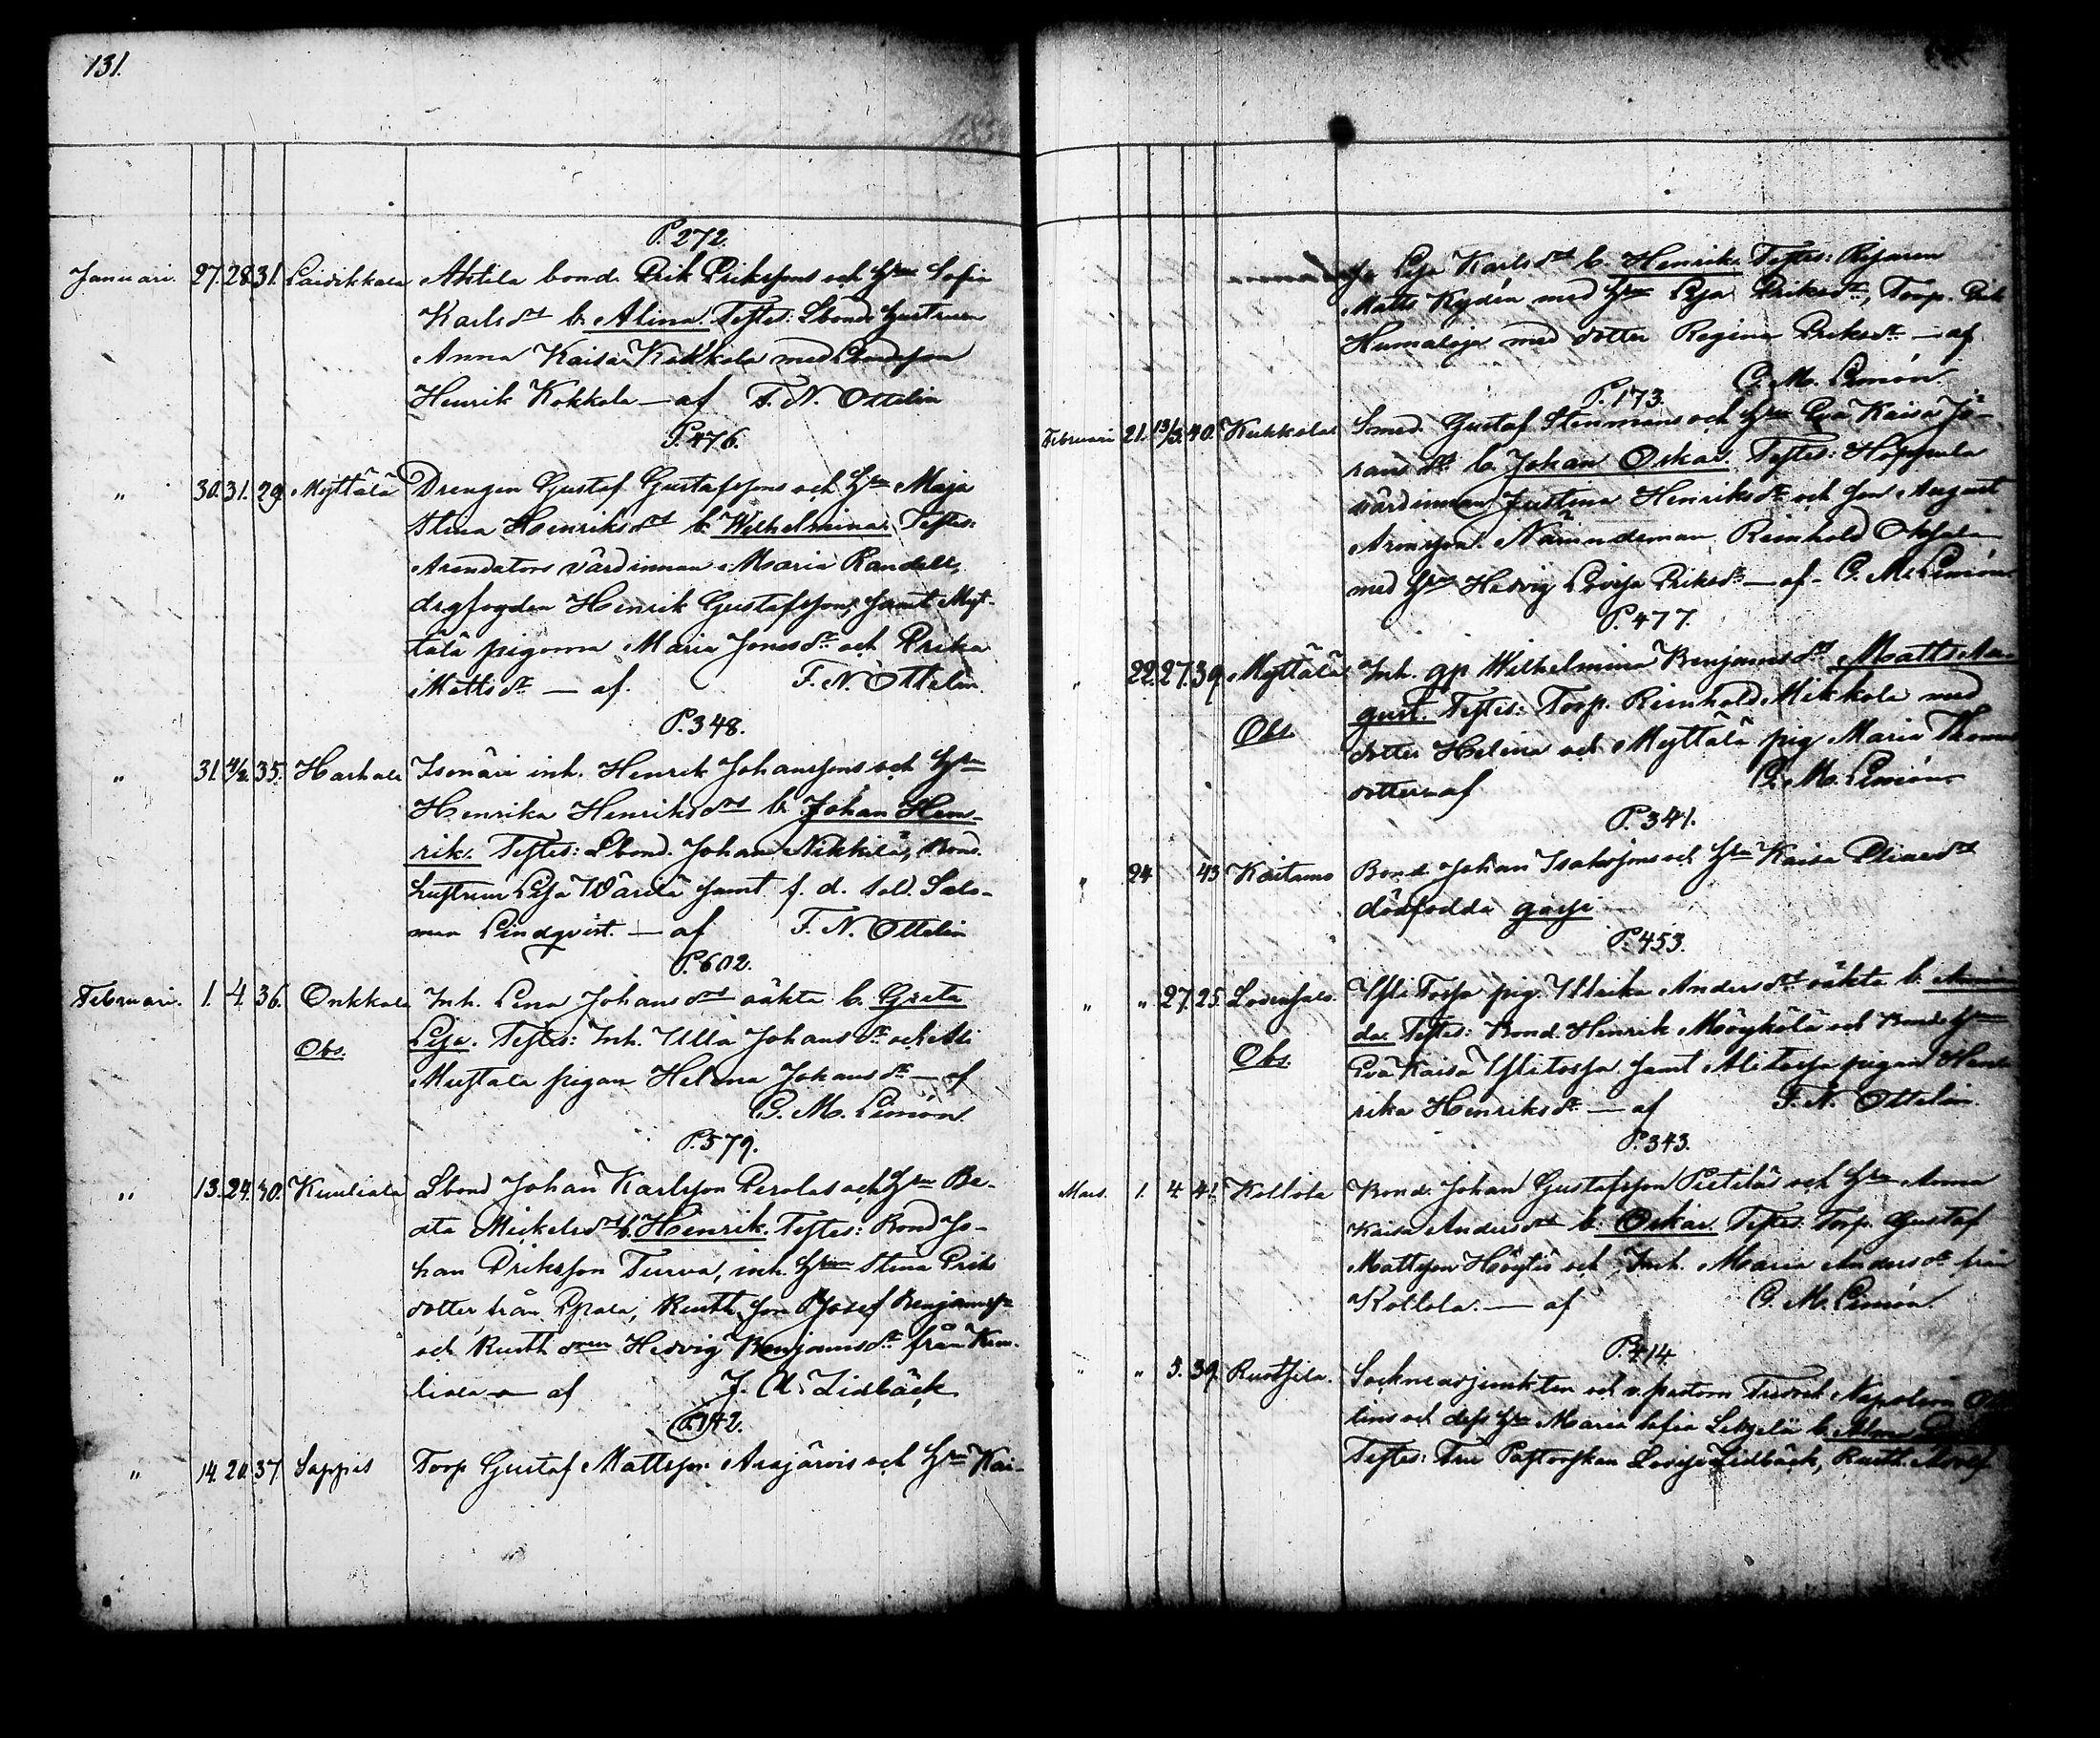 131.
P. 272.
Januari. 27. 28. 31. Laivikkala Ahtila bond. Erik Eriksons och Hru Sofia
Karls dr b. Alina. Testes: Sbonde hustrun
Anna Kaisa Kokkola med
Henrik Kokkola — af F. N. Ottelin
P. 476.
" 30. 31. 29. Myttälä Drengen Gustaf Gustafssons och Hru Maja
Stina Henriks dr b. Wilhelmina. Testes:
Arendators värdinnan Maria Randell,
drgfogden Henrik Gustafsson, samt Myt-
tälä pigorna Maria Jonas dr och Erika
Matts dr — af. F. N. Ottelin.
P. 348.
" 31. 4/2. 35. Harhala Isonäri inh. Henrik Johanssons och Hru
Henrika Henriks dr b. Johan Hen-
rik. Testes: Sbond. Johan Nikkilä, Bond.
hustrun Lisa Wärilä samt f. d. sold. Salo-
mon Lindqvist. — af F. N. Ottelin
P. 602.
Februari. 1. 4. 36. Onkkala Inh. Lena Johans dr oäkta b. Greta
Obs. Lisa. Testes: Inh. Ulla Johans dr och Ali
Mustala pigan Helena Johans dr — af
C. M. Limón.
P. 579.
" 13. 24. 40. Kuuliala Sbond Johan Karlsson Perolas och Hru Be-
ata Mickels dr b. Henrik. Testes: Bond Jo-
han Eriksson Turva, inh. Hrun Stina Eriks
dotter från Epaa, Rusth. son Josef Benjamins
och Rusth Hedvig Benjamins dr från Kuu-
liala — af J. A. Lidbäck
P. 142.
" 14. 20. 37. Sappis Torp Gustaf Mattsson Arajärvis och Hru Kai-
sa Lisa Karls dr b. Henrik. Testes:
Matts Kydén med Hru Lisa Eriks dr, Torp. Erik
Humaloja med dotter Regina Eriks dr — af
C. M. Limón.
P. 173.
Februari 21. 13/3. 40. Kukkola Smed. Gustaf Stenmans och Hru Eva Kaisa Jö-
rans dr b. Johan Oskar. Testes: Hoppula
värdinnan Justina Henriks dr och son August
Aronsson. Nämndeman Reinhold
med Hru Hedvig Lovisa Eriks dr — af - C. M. Limón
P. 477.
" 22. 27. 39. Myttälä Inh. gp Wilhelmina Benjams dr Matts Au-
Obs. gust. Testes: Torp. Reinhold Mikkola med
dotter Helena och Myttälä pig Maria Thomas
dotter — af C. M. Limón
P. 341.
" 24 43 Kaitamo Bond. Johan Isakssons och Hru Kaisa Elias dr
dödfödda gosse
P. 453.
" " 27. 25. Yli Torpa pig. Ulrika Anders dr oäkta b. Aman-
Obs. da. Testes: Bond. Henrik Möykälä och Bond. Hru
Eva Kaisa Ylitorpa samt Alitorpa pigan Hen-
rika Henriks dr — af F. N. Ottelin.
P. 343.
Mars. 1. 4. 41. Kollola Bond. Johan Gustafsson Pietiläs och Hru Anna
Kaisa Anders dr b. Oskar. Testes: Torp. Gustaf
Mattsson Höytiö och Inh. Maria Anders dr från
Kollola. — af C. M. Limón.
P. 414.
" " 5. 39. Sockneadjunkten och v. pastorn Fredrik Napoleon
lins och dess Hru Maria Sofia b.
Testes: Fru Pastorskan Lovisa Lidbäck, Rusth. Adolf